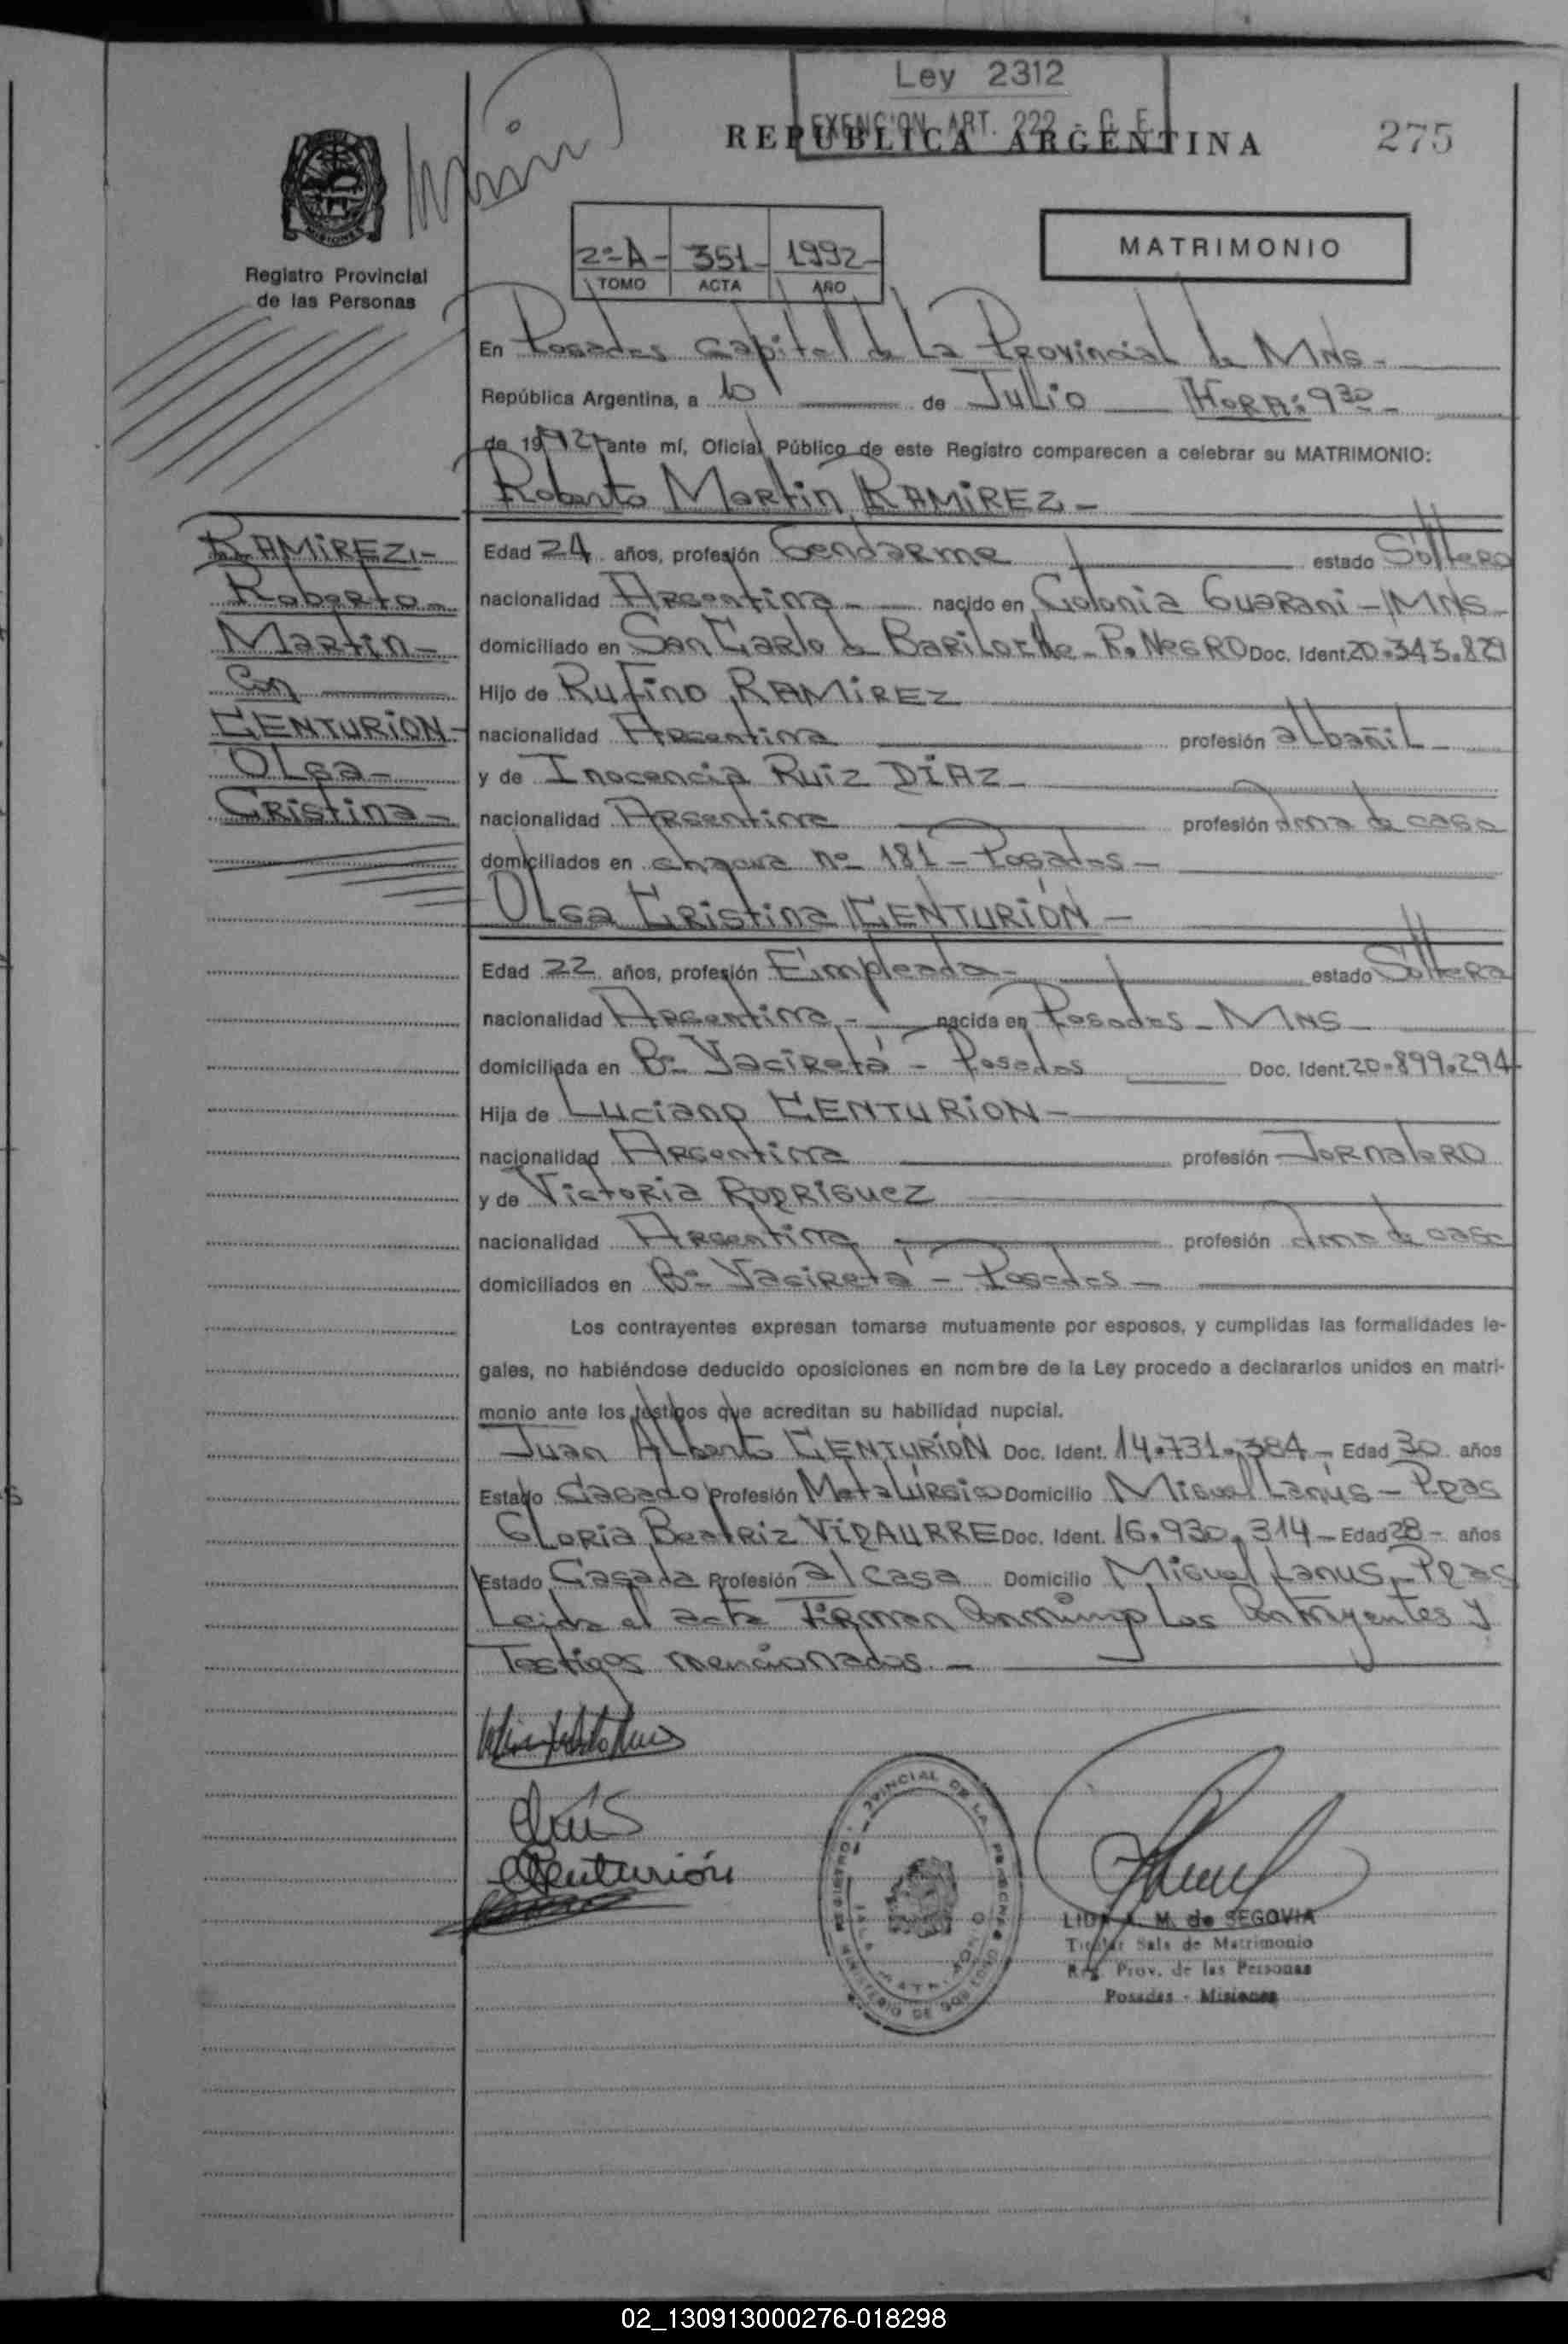 Ley 2312
EXENCION ART. 222 - C. F.
REPUBLICA ARGENTINA
275
MISIONES
Registro Provincial
de las Personas
2º-A- 351- 1992-
TOMO ACTA AÑO
MATRIMONIO
En Posadas Capital de La Provincial de Mns-
República Argentina, a 10 de Julio HORA: 9 30-
de 1992 ante mí, Oficial Público de este Registro comparecen a celebrar su MATRIMONIO:
Roberto Martin RAMIREZ-
RAMIREZ-
Roberto-
Martin-
Con
CENTURION-
Olga-
Cristina-
Edad 24 años, profesión Gendarme estado Soltero
nacionalidad Argentina- nacido en Colonia Guarani - Mns-
domiciliado en San Carlo de Bariloche - R. Negro Doc. Ident. 20.343.829
Hijo de Rufino RAMIREZ
nacionalidad Argentina profesión albañil-
y de Inocencia Ruiz DÍAZ-
nacionalidad Argentina profesión ama de casa
domiciliados en chacra nº 181 - Posadas-
Olga Cristina CENTURIÓN-
Edad 22 años, profesión Empleada- estado Soltera
nacionalidad Argentina- nacida en Posadas - Mns-
domiciliada en Bº Yaciretá - Posadas Doc. Ident. 20.899.294-
Hija de Luciano CENTURION-
nacionalidad Argentina profesión Jornalero
y de Victoria RODRIGUEZ
nacionalidad Argentina profesión ama de casa
domiciliados en Bº Yaciretá - Posadas-
Los contrayentes expresan tomarse mutuamente por esposos, y cumplidas las formalidades le-
gales, no habiéndose deducido oposiciones en nombre de la Ley procedo a declararlos unidos en matri-
monio ante los testigos que acreditan su habilidad nupcial.
Juan Alberto CENTURIÓN Doc. Ident. 14.731.384- Edad 30 años
Estado Casado Profesión Metalúrgico Domicilio Miguel Lanús - Pdas
Gloria Beatriz VIDAURRE Doc. Ident. 16.930.314- Edad 28- años
Estado Casada Profesión al casa Domicilio Miguel Lanus - Pdas
Leida el acta Firman Conmigo Los Contrayentes y
Testigos mencionados.-
Centurión
LIDA A. M. de SEGOVIA
Titular Sala de Matrimonio
Reg. Prov. de las Personas
Posadas - Misiones
02_130913000276-018298